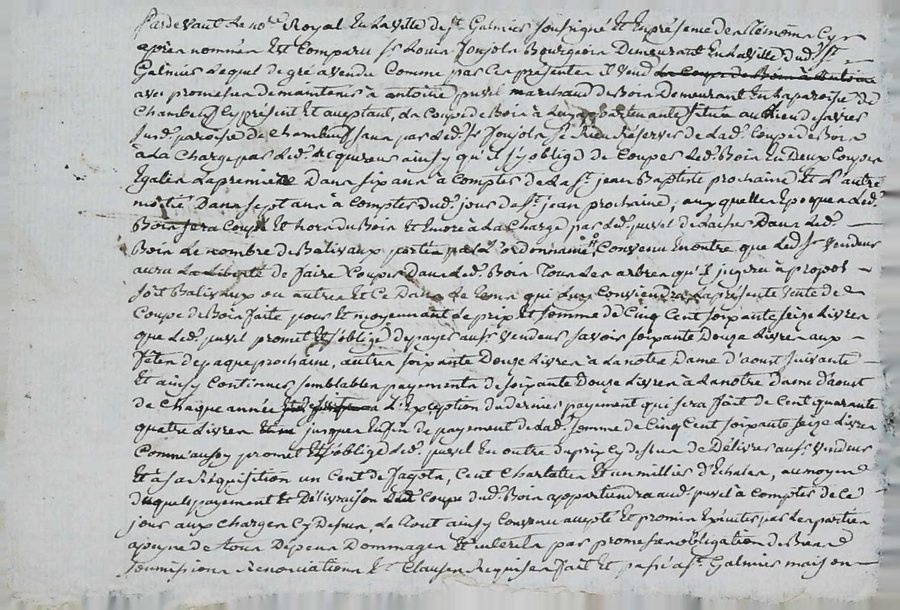 Pardevant Le no.re Royal En La ville de st. Galmier soussigné et En présence des temoins Cy
apres nommés Est Comparu sr Louis Jonjola Bourgeois Demeurant En La ville dud. st
Galmier Lequel de gré a vendu Comme par Ces presentes il vend La Coupe de Bois à Antoine
avec promesse de maintenir à antoine purel marchand de Bois Demeurant En La paroisse de
Chambeuf Cy présent Et aceptant, La Coupe de Bois à Luy appartenante scitué au Lieu de
sud. paroisse de Chambeuf sans par Led. sr Jonjola se Rien Réserver de Lad. Coupe de Bois
à La Charge par Led. acquereur ainsy qu'il s'y oblige de Couper Led. Bois En Deux Coupes
Egales La premiere Dans six ans à Compter de La st. jean Baptiste prochaine Et L'autre
moitié Dans sept ans à Compter dud. jour de st. jean prochaine, auxquelles Epoques Led.
Bois sera Coupé Et hors du Bois Et Encore à La Charge par Led. purel de Laisser Dans Led.
Bois Le nombre de Balivaux portés par L'ordonnance, Convenu En outre que Led. sr vendeur
aura La Liberté de faire Couper Dans Led. Bois Tous Les arbres qu'il jugera à propos
soit Balivaux ou autres Et Ce Dans Le tems qui Luy Conviendra La présente vente de
Coupe de Bois faite pour Et moyennant Le prix Et somme de Cinq Cent soixante seize Livres
que Led. purel promet Et s'oblige de payer aud. sr vendeur savoir soixante Douze Livres aux
fêtes de paque prochaine, autres soixante Douze Livres à La notre Dame d'aoust suivante
Et ainsy Continuer semblables payements de soixante Douze Livres à La notre Dame d'aoust
de Chaque année à L'Exception du dernier payement qui sera fait de Cent quarante
quatre Livres jusques En fin de payement de Lad. somme de Cinq Cent soixante seize Livres
Comme aussy promet Et s'oblige Led. purel En outre du prix Cy dessus de Délivrer aud. sr vendeur
Et à sa Réquisition un Cent de fagots, Cent Et un millier d'Echalas, au moyen
duquel payement Et Délivraison Lad. Coupe dud. Bois appartiendra aud. purel à Compter de Ce
jour aux Charges Cy Dessus, Le tout ainsy Convenu accepté Et promis Exécuter par Les parties
a peyne de tous Dépens Dommages Et interets par promesse obligation de Biens
soumissions Renonciations Et Clauses Requises fait Et passé a st. Galmier maison